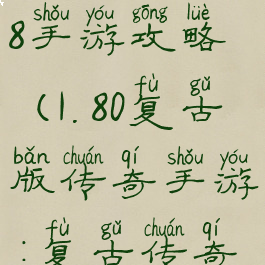 shǒu yóu gōng lüè
8手游攻略
fù gǔ
(1.80复古
bǎn chuán qí shǒu yóu
版传奇手游
fù gǔ chuán qí
:复古传奇